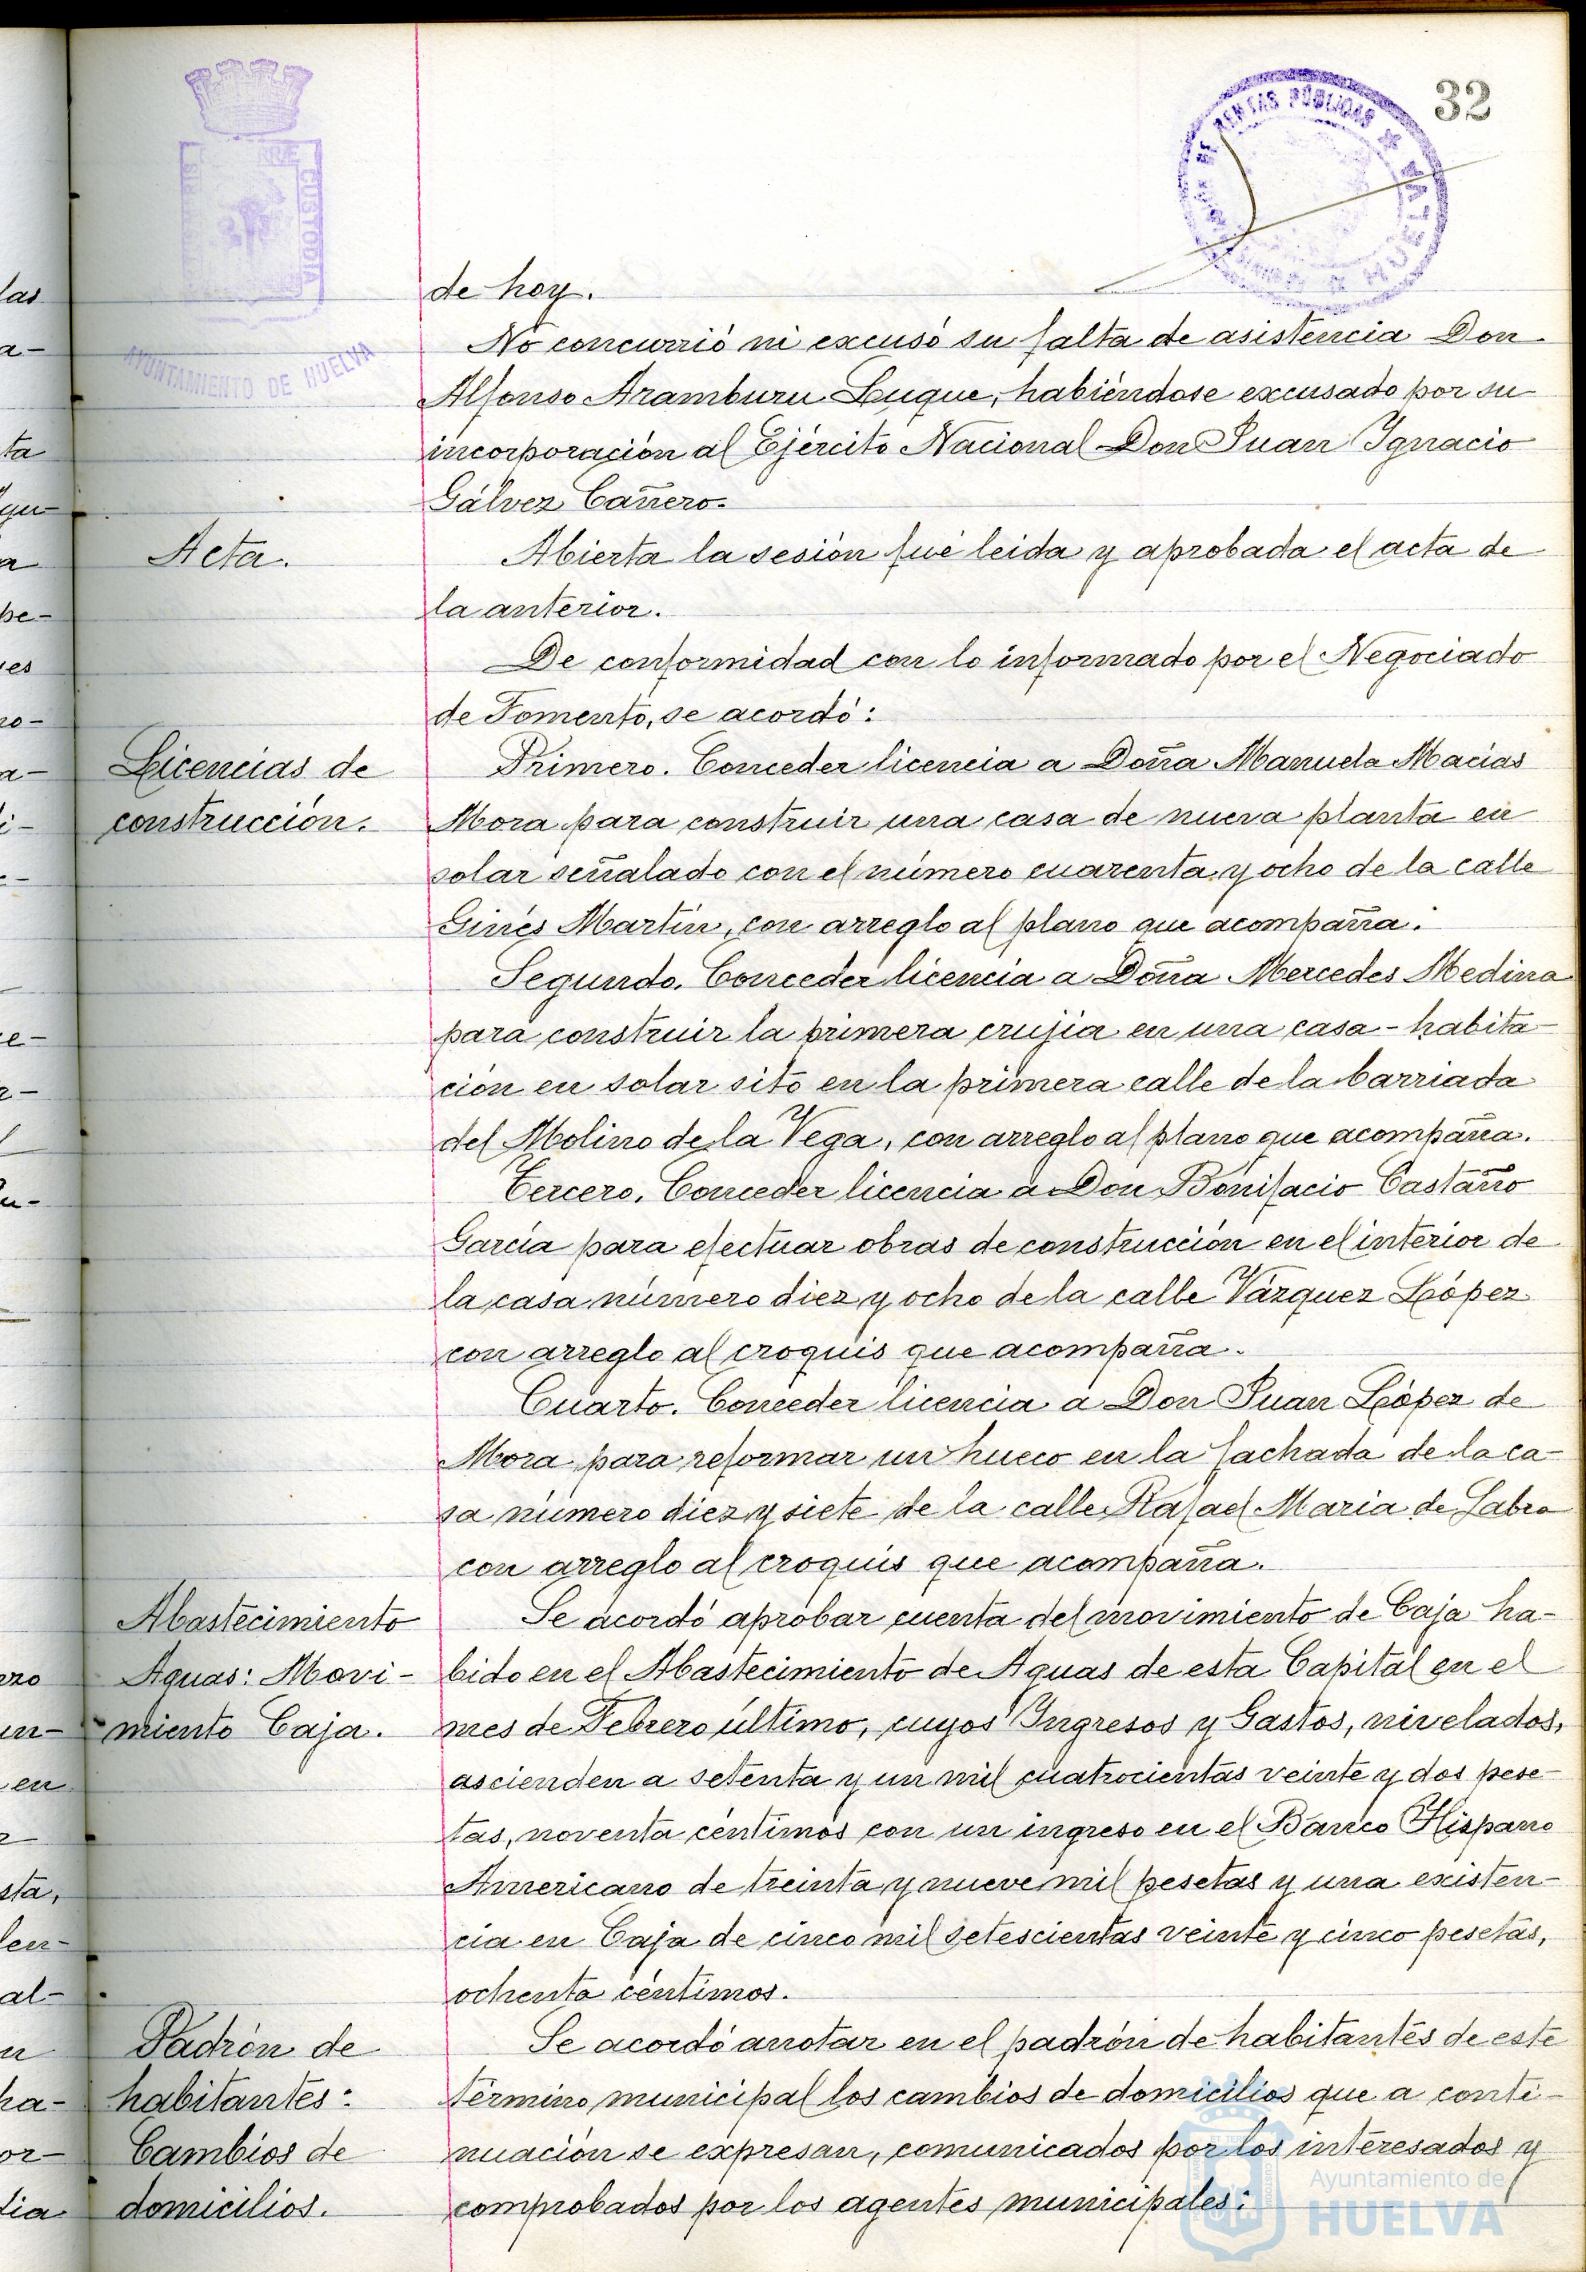 32
RENTAS PÚBLICAS
HUELVA
CUSTODIA
AYUNTAMIENTO DE HUELVA
de hoy.
No concurrió ni excusó su falta de asistencia Don
Alfonso Aramburu Luque, habiéndose excusado por su
incorporación al Ejército Nacional Don Juan Ignacio
Gálvez Cañero.
Acta.
Abierta la sesión fué leida y aprobada el acta de
la anterior.
De conformidad con lo informado por el Negociado
de Fomento, se acordó:
Licencias de
construcción.
Primero. Conceder licencia a Doña Manuela Macías
Mora para construir una casa de nueva planta en
solar señalado con el número cuarenta y ocho de la calle
Ginés Martín, con arreglo al plano que acompaña.
Segundo. Conceder licencia a Doña Mercedes Medina
para construir la primera crujia en una casa-habita-
ción en solar sito en la primera calle de la barriada
del Molino de la Vega, con arreglo al plano que acompaña.
Tercero. Conceder licencia a Don Bonifacio Castaño
García para efectuar obras de construcción en el interior de
la casa número diez y ocho de la calle Vázquez López
con arreglo al croquis que acompaña.
Cuarto. Conceder licencia a Don Juan López de
Mora para reformar un hueco en la fachada de la ca-
sa número diez y siete de la calle Rafael Maria de Labra
con arreglo al croquis que acompaña.
Abastecimiento
Aguas: Movi-
miento Caja.
Se acordó aprobar cuenta del movimiento de Caja ha-
bido en el Abastecimiento de Aguas de esta Capital en el
mes de Febrero último, cuyos Ingresos y Gastos, nivelados,
ascienden a setenta y un mil cuatrocientas veinte y dos pese-
tas, noventa céntimos con un ingreso en el Banco Hispano
Americano de treinta y nueve mil pesetas y una existen-
cia en Caja de cinco mil setescientas veinte y cinco pesetas,
ochenta céntimos.
Padrón de
habitantes:
Cambios de
domicilios.
Se acordó anotar en el padrón de habitantes de este
término municipal los cambios de domicilios que a conti-
nuación se expresan, comunicados por los interesados y
comprobados por los agentes municipales:
Ayuntamiento de
HUELVA